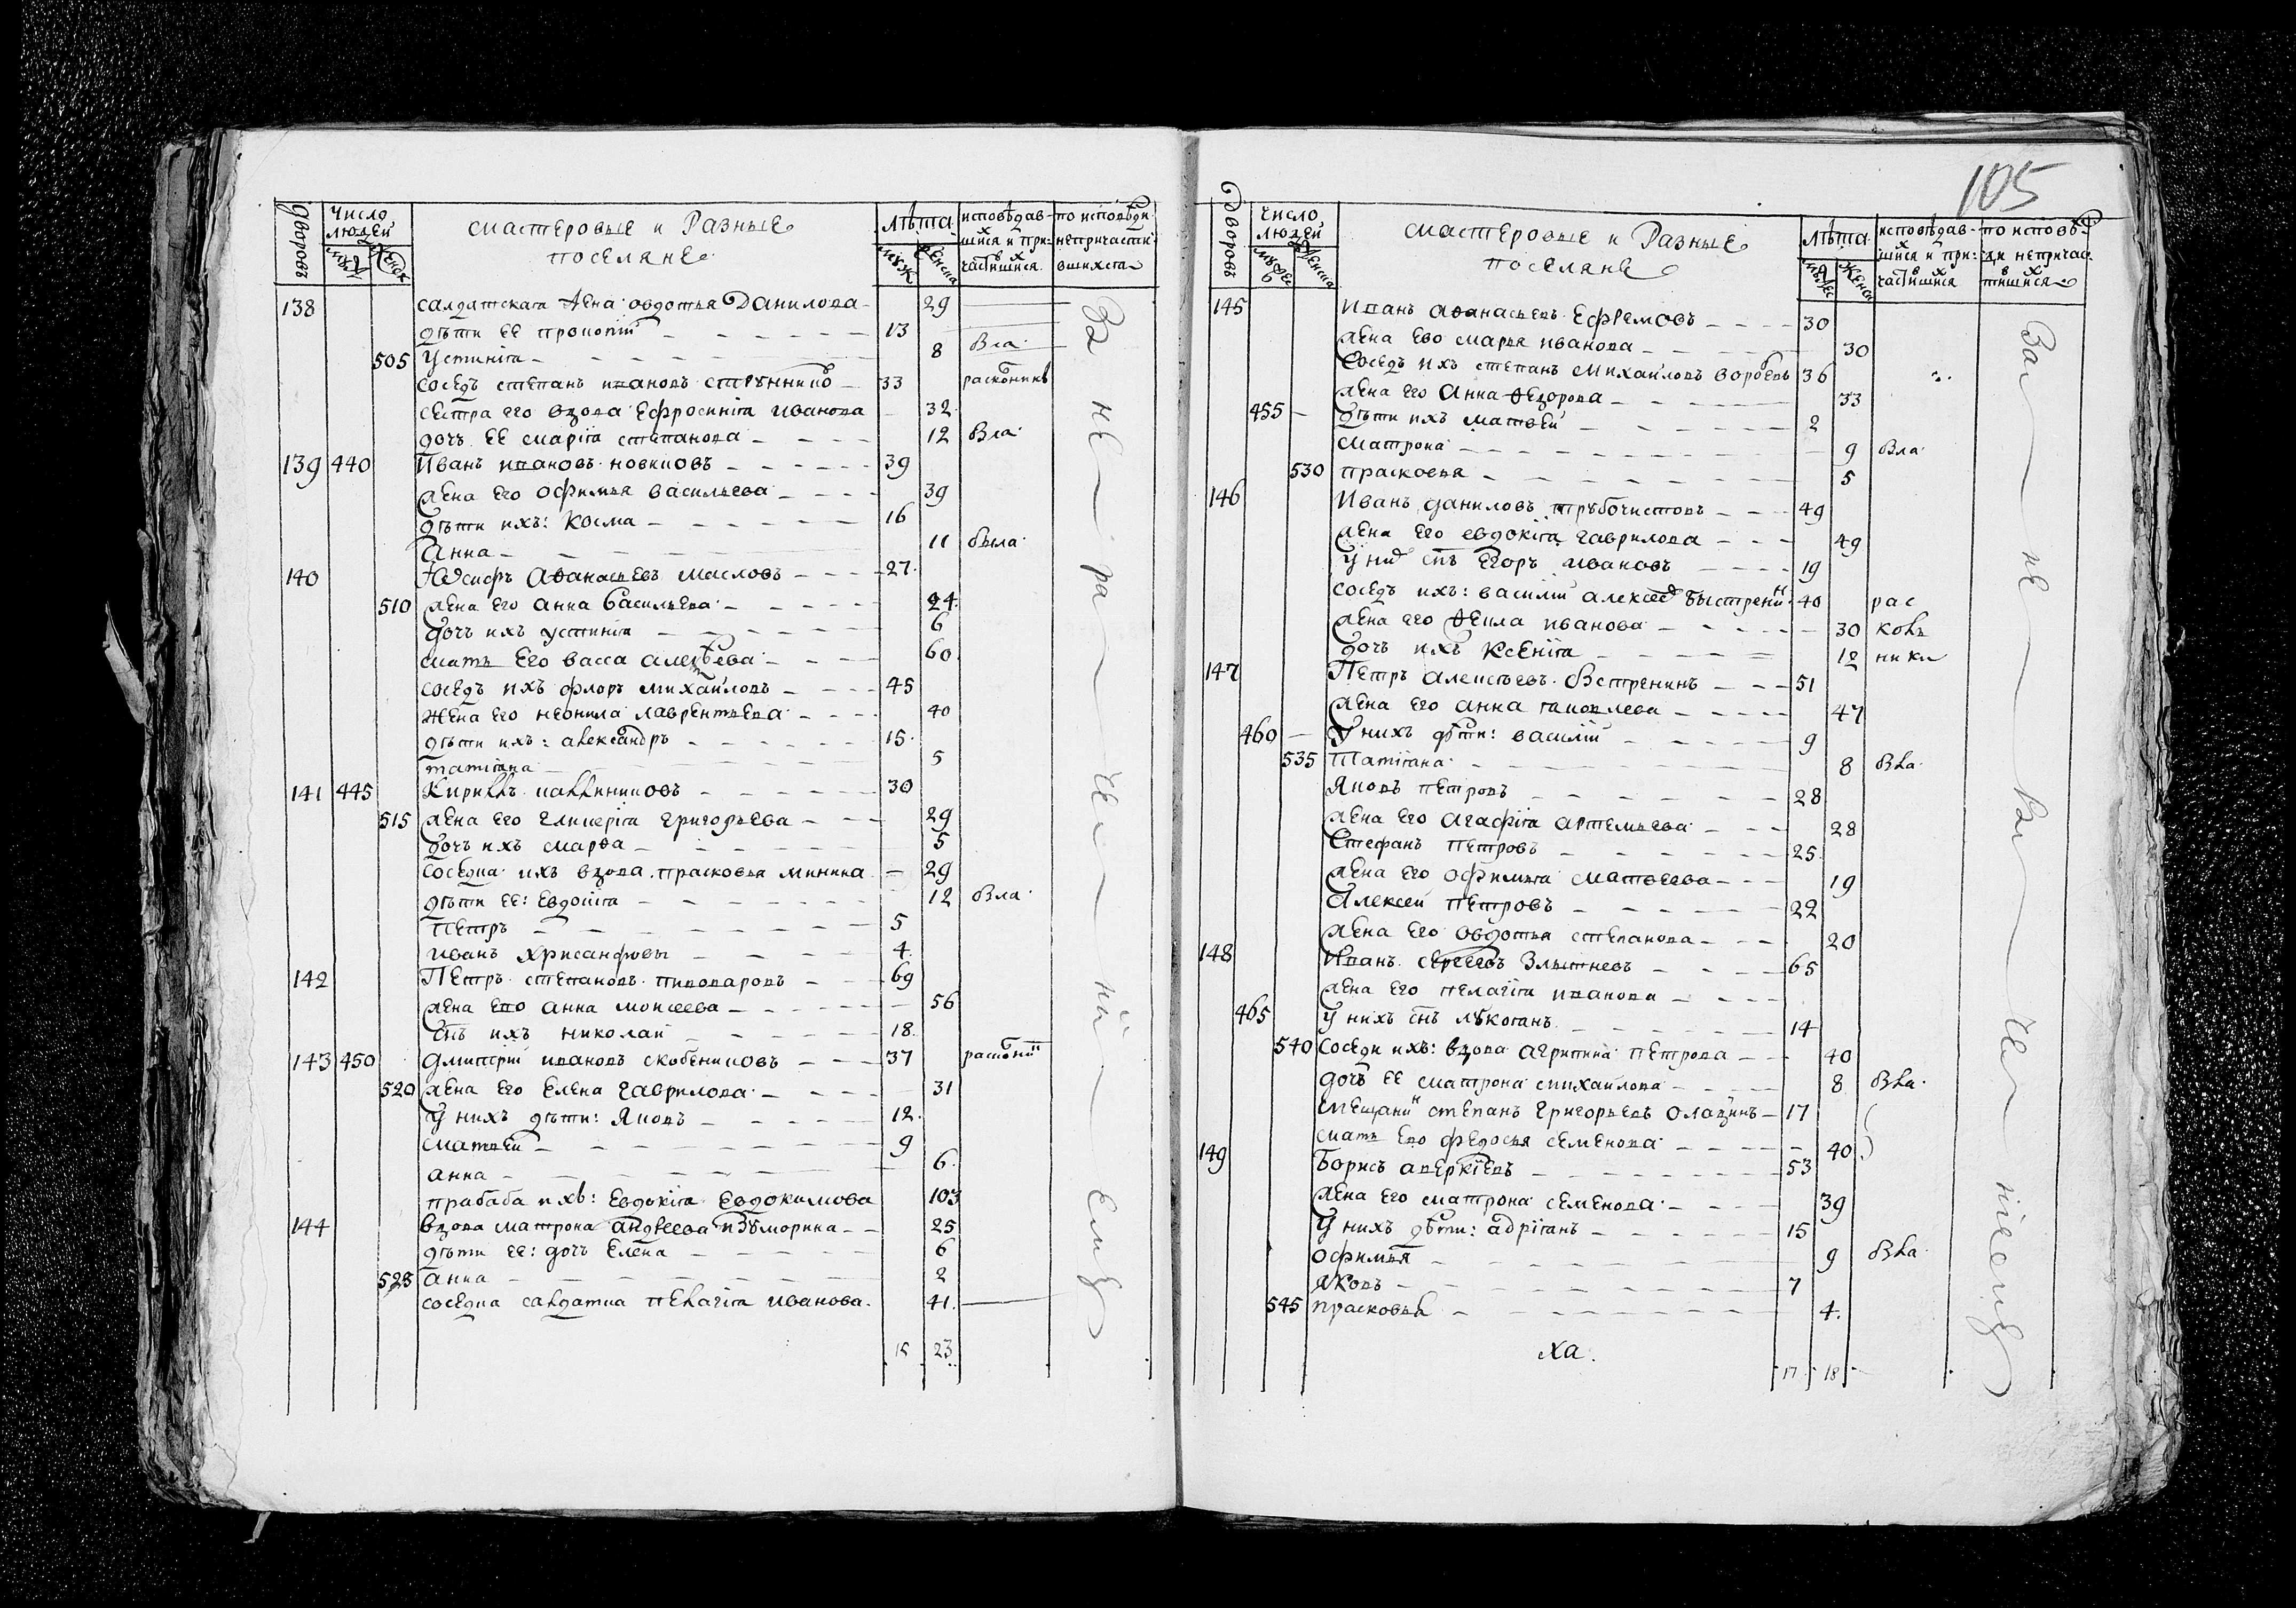 дворовъ
Число людей
мужск
женск
Мастеровые и Разные поселяне
лѣта
муж
женска
исповѣдавшихся и причастившихся
по исповѣди непричастившихся
138 салдатская жена овдотья Данилова 29
дѣти ее прокопiй 13
505 Устинiя 8 Бла
сосѣдъ степанъ ивановъ 33 расколникъ
сестра его вдова ефросинiя иванова 32
дочь ее марiя степанова 12 бла
139 440 Иванъ ивановъ новиковъ 39
жена его офимья васильева 39
дѣти ихъ: косма 16
Анна 11 была
140 Iѡсифъ Аѳанасьевъ масловъ 27
510 жена его анна васильева 24
дочь ихъ устинiя 6
мать его васса алексѣева 60
сосѣдъ ихъ флоръ михайловъ 45
жена его неонила лаврентьева 40
дѣти ихъ: александръ 15
татiяна 5
141 445 Кириллъ калининковъ 30
515 жена его гликерiя григорьева 29
дочь ихъ марѳа 5
соседка ихъ вдова прасковья минина 29
дѣти ее: Евдокiя 12 бла
петръ 5
иванъ хрисанфовы 4
142 Петръ степановъ пивоваровъ 69
жена ево анна моисеева 56
снъ ихъ николай 18
143 450 дмитрiй ивановъ скобениковъ 37 расколник
520 жена его елена гаврилова 31
у нихъ дѣти: Яковъ 12
матвѣй 9
анна 6
прабаба ихъ: евдокiя евдокимова 103
144 вдова матрона андреева изъморина 25
дѣти ее: дочь елена 6
523 анна 2
соседка салдатка пелагiя иванова 41
15 23
За нерачениемъ
105
дворовъ
число людей
мужес
женска
мастеровые и Разные поселяне
лѣта
мужес
женск
исповѣдавшихся и причастившихся
по исповѣди непричастившихся
145 Иванъ аѳанасьевъ Ефремовъ 30
жена ево марья иванова 30
Соседъ ихъ степанъ михайловъ воробевъ 36
жена его Анна ѳедорова 33
455 дѣти ихъ матвей 2
матрона 9 бла
530 прасковья 5
146 Иванъ даниловъ трубочистовъ 49
жена его евдокiя гаврилова 49
у них снъ Егоръ ивановъ 19
соседъ ихъ: василiй алексѣев быстренин 40 рас
жена его ѳекла иванова 30 коль
дочь ихъ Ксенiя 12 ники
147 Петръ алексѣевъ Встренинъ 51
жена его анна яковлева 47
460 У нихъ дѣти: василiй 9
535 Татiяна 8 бла
Яковъ петровъ 28
жена его агафiя артемьева 28
Стефанъ петровъ 25
жена его офимья матвеева 19
Алексей петровъ 22
жена его овдотья степанова 20
148 Иванъ сергеевъ Злытневъ 65
жена его пелагiя иванова
465 у нихъ снъ лукоянъ 14
540 соседи ихъ: вдова агрипина петрова 40
дочь ее матрона михайлова 8 бла
мещанинъ степанъ григорьевъ оладинъ 17
мать ево федосья семенова 40
149 Борисъ аверкiевъ 53
жена его матрона семенова 39
у нихъ дѣти: адрiянъ 15
офимья 9 бла
яковъ 7
545 прасковья 4
ха
17 18
За нерачениемъ